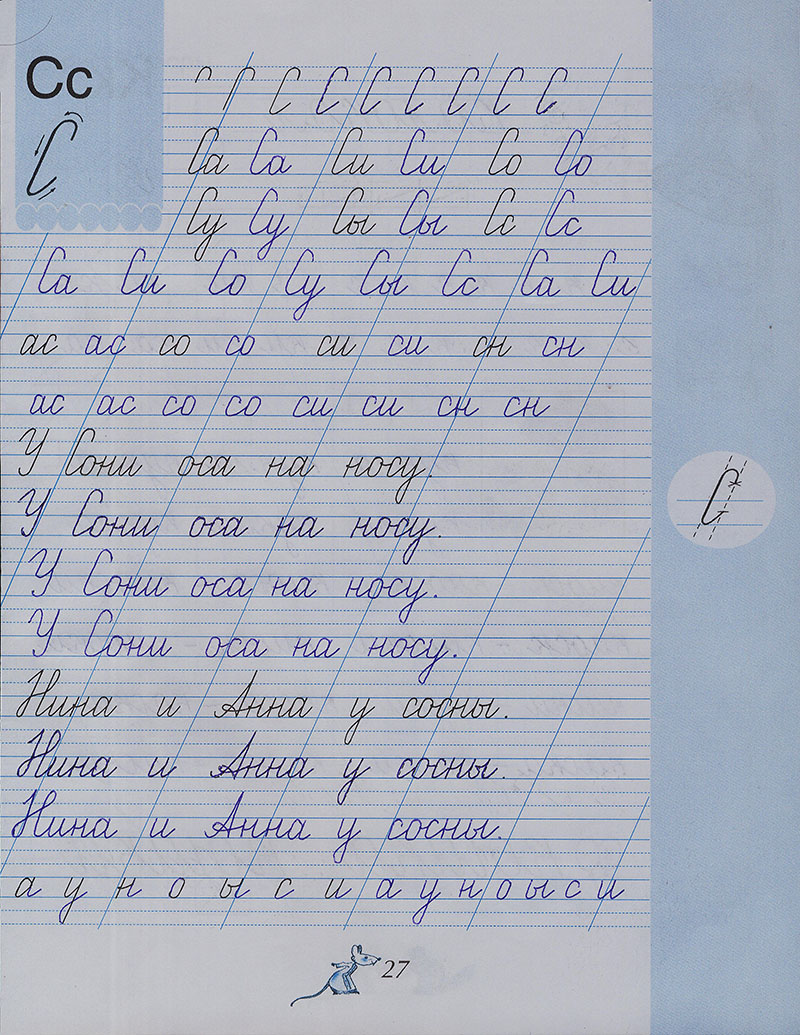 Сс
С С С С С С С
Са Са Си Си Со Со
Су Су Сы Сы Сс Сс
Са Си Со Су Сы Сс Са Си
ас ас со со си си сн сн
ас ас со со си си сн сн
У Сони оса на носу.
У Сони оса на носу.
У Сони оса на носу.
У Сони оса на носу.
Нина и Анна у сосны.
Нина и Анна у сосны.
Нина и Анна у сосны.
а у н о ы с и а у н о ы с и
27